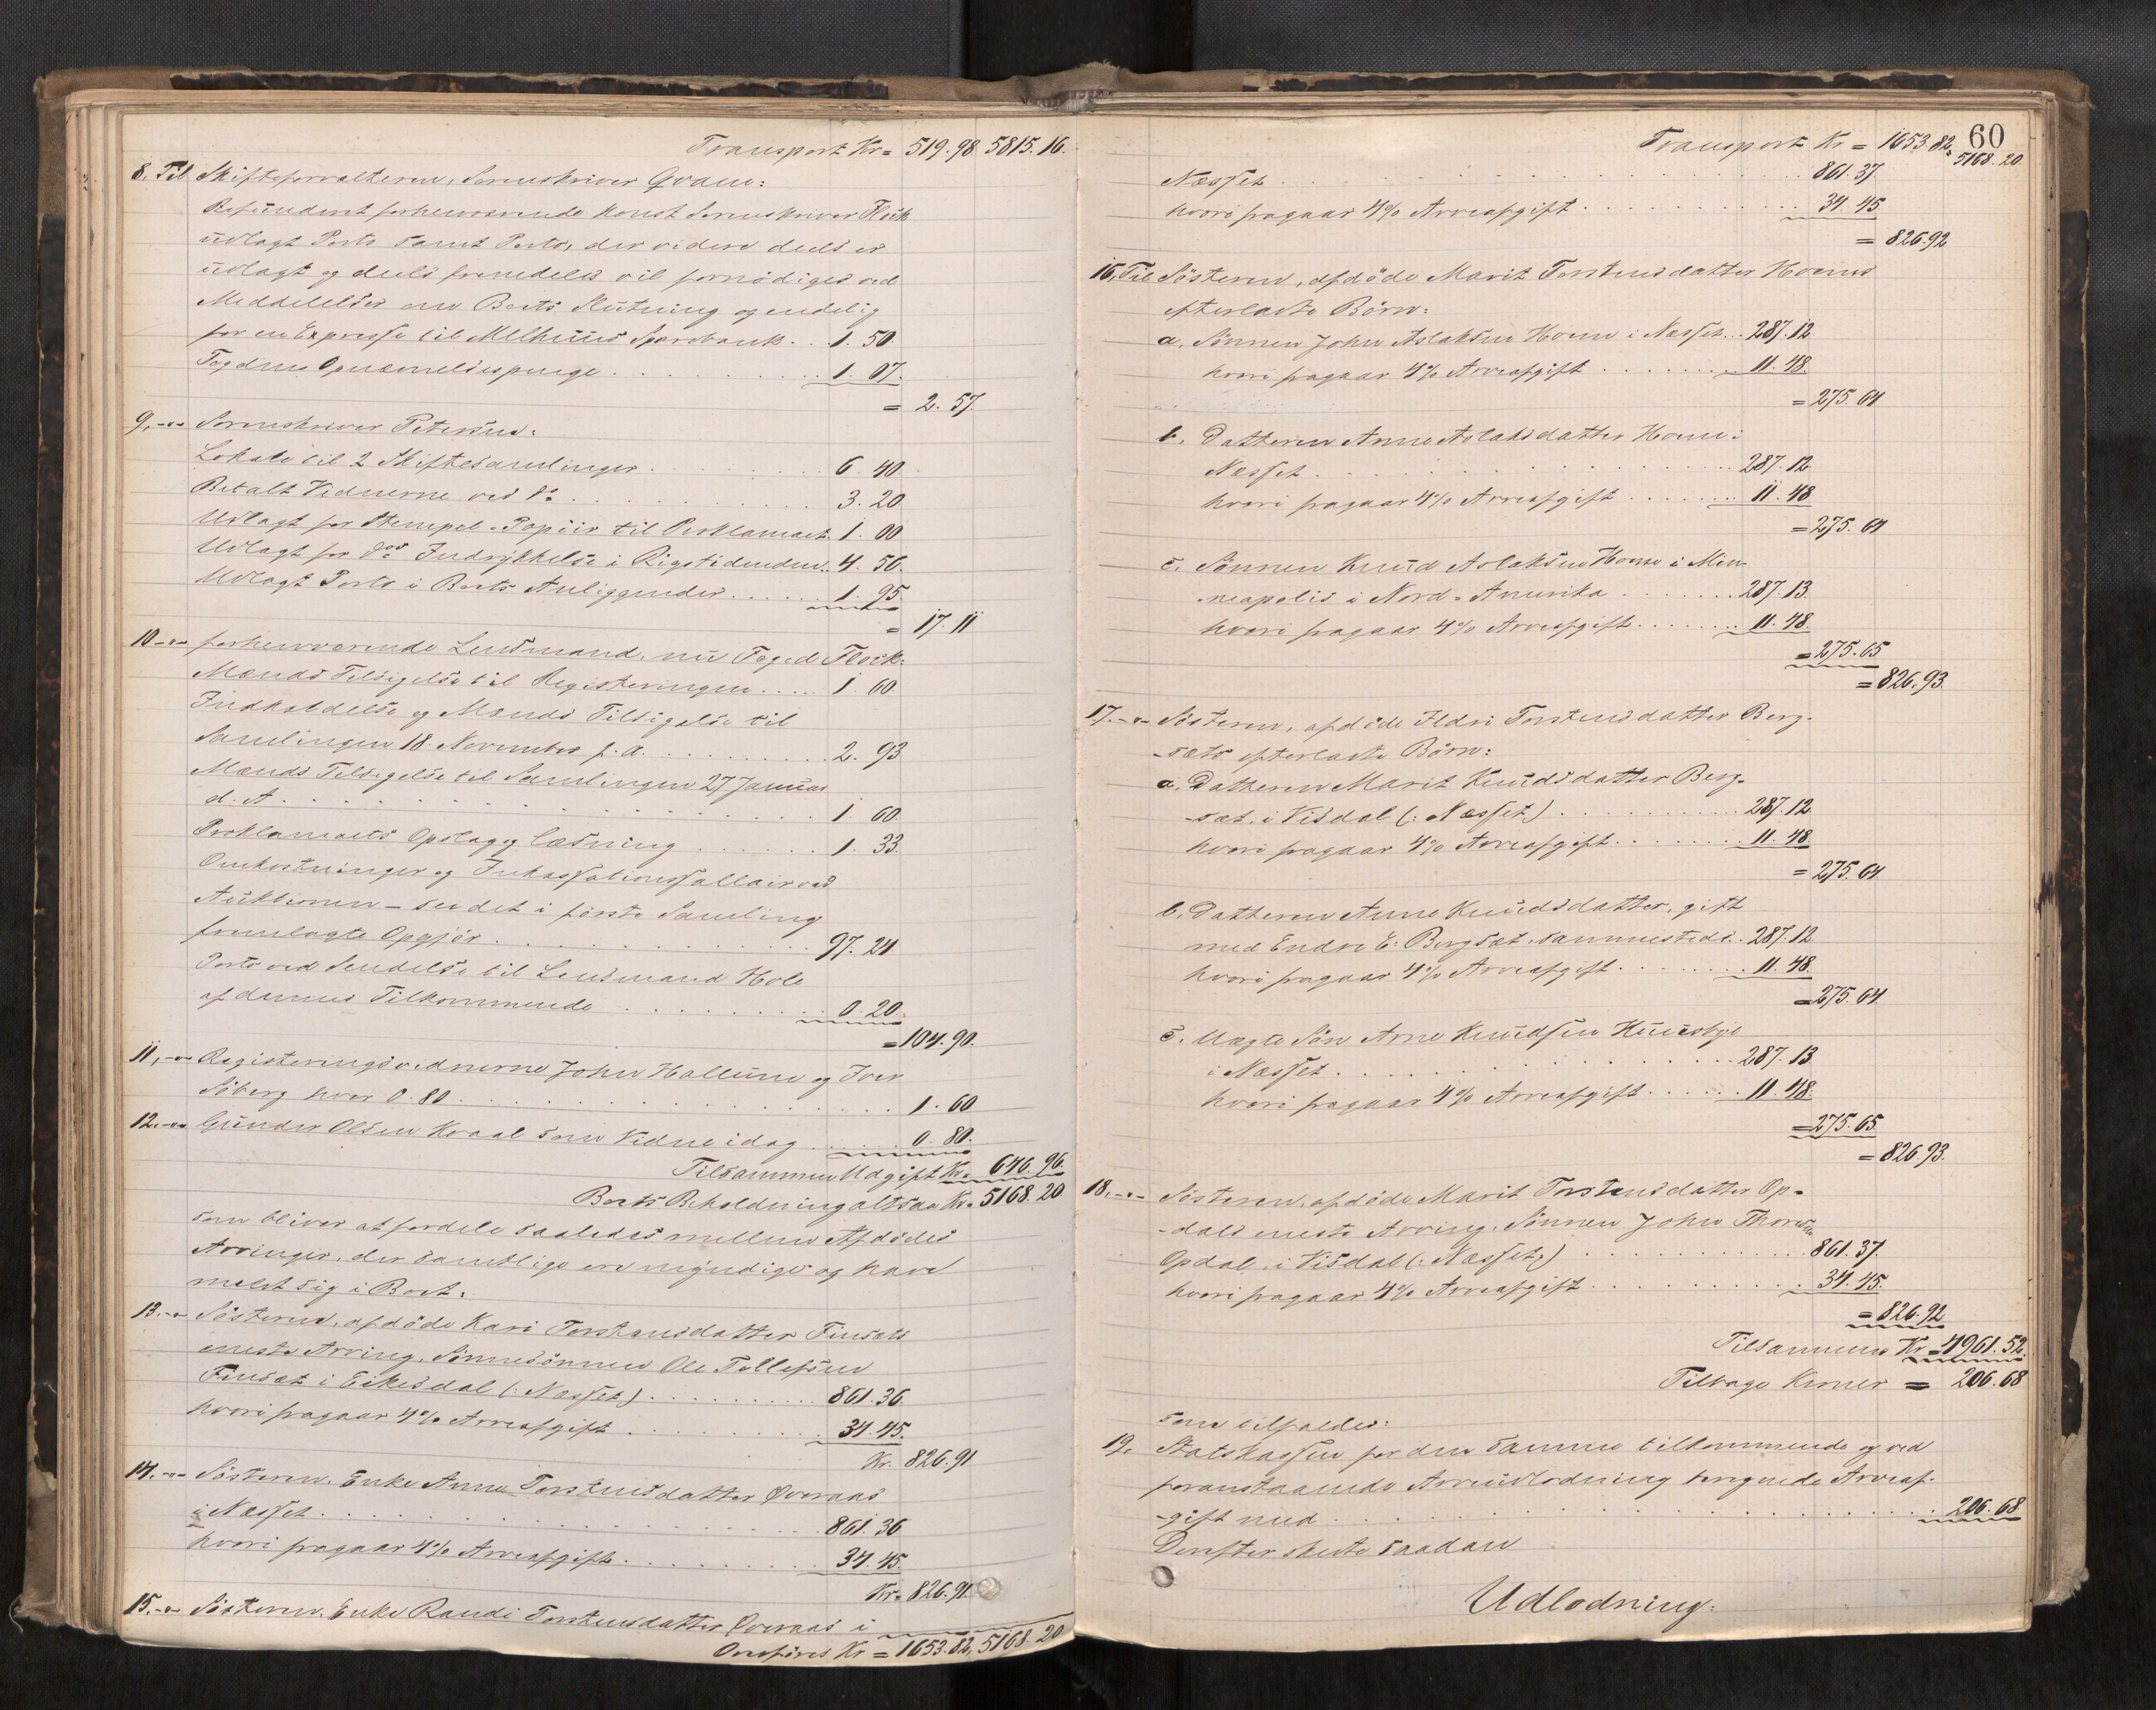 Transport Kr = 519.98 5815.16.
8. Til Skifteforvalteren, Sorenskriver Qvam:
Refunderet forhenværende konst Sorenskriver Flük
udlagt Porto samt Porto, der videre deels er
udlagt og deels fremdeles vil fornödiges ved
Meddelelser om Boets Slutning og endelig
for en Expresse til Melhuus Sparebank . . 1. 50
Fogdens Opnævnelsespenge . . . 1. 07.
= 2. 57.
9. -"- Sorenskriver Petersen:
Lokale til 2 Skiftesamlinger . . . 6. 40.
Betalt Vidnerne ved do . . . 3. 20
Udlagt for Stempel-Papiir til Proklamaet 1. 00
Udlagt for dos Indrykkelse i Rigstidenden . 4. 56.
Udlagt Porto i Boets Anliggender . . . 1. 95.
= 17. 11
10 -"- forhenværende Lensmand, nu Foged Flock:
Mænds Tilsigelse til Registeringen . . . 1. 60
Indkaldelse og Mænds Tilsigelse til
Samlingen 18. November f. A. . . . 2. 93
Mænds Tilsigelse til Samlingen 27 Januar
d. A . . . 1. 60.
Proklamaets Opslag og læsning . . . 1. 33.
Omkostninger og Inkassationssallair ved
Auktionen – se det i förste Samling
fremlagte Opgjör . . . 97. 24
Porto ved Sendelse til Lensmand Hole
af dennes Tilkommende . . . 0. 20.
= 104. 90.
11. -"- Registeringsvidnerne John Hallüm og Iver
Söberg hver 0. 80 . . . 1. 60
12. -"- Gunder Olsen Kraal som Vidne idag . . . 0. 80.
Tilsammen Udgift Kr = 646. 96.
Boets Beholdning altsaa Kr = 5168. 20
som bliver at fordele saaledes mellem Afdödes
Arvinger, der samtlige ere myndige og have
meldt sig i Boet:
13. -"- Sösteren, afdöde Kari Torstensdatter Finsæts
eneste Arving, Sönnesönnen Ole Tollefsen
Finsæt i Eikesdal (: Næsset) . . . 861. 36.
hvori fragaar 4% Arveafgift . . . 34. 45.
Kr. 826. 91
14. -"- Sösteren, Enke Anne Torstensdatter Överaas
i Næsset . . . 861. 36
hvori fragaar 4% Arveafgift . . . 34. 45.
Kr = 826. 91.
15. -"- Sösteren, Enke Randi Torstensdatter Överaas i
Overföres Kr = 1653. 82, 5168. 20
60
Transport Kr = 1653. 82, 5168. 20.
Næsset . . . 861. 37.
hvori fragaar 4% Arveafgift . . . 34. 45
= 826. 92
16. Til Sösteren, afdöde Marit Torstensdatter Hoems
efterladte Börn:
a. Sönnen John Aslaksen Hoem i Næsset . . 287. 12
hvori fragaar 4% Arveafgift . . . 11. 48.
= 275. 64
b. Datteren Anne Aslaksdatter Hoem i
Næsset . . . 287. 12
hvori fragaar 4% Arveafgift . . . 11. 48
= 275. 64
c. Sönnen Knud Aslaksen Hoem i Min-
neapolis i Nord-Amerika . . . 287. 13.
hvori fragaar 4% Arveafgift . . . 11. 48.
= 275. 65
= 826. 93.
17. -"- Sösteren, afdöde Ildri Torstensdatter Berg-
-sæts efterladte Börn:
a. Datteren Marit Knudsdatter Berg-
-sæt i Visdal (: Næsset) . . . 287. 12
hvori fragaar 4% Arveafgift . . . 11. 48.
= 275. 64
b. Datteren Anne Knudsdatter, gift
med Endre E. Bergsæt, sammesteds . . 287. 12
hvori fragaar 4% Arveafgift . . . 11. 48
= 275. 64.
c. Uægte Sön Arne Knudsen Huusbye
i Næsset . . . 287. 13
hvori fragaar 4% Arveafgift . . . 11. 48.
= 275. 65.
= 826. 93.
18. -"- Sösteren, afdöde Marit Torstensdatter Op-
-dals eneste Arving, Sönnen John Thoresen
Opdal, i Visdal (: Næsset) . . . 861. 37.
hvori fragaar 4% Arveafgift . . . 34. 45.
= 826. 92
Tilsammen Kr = 4961. 52.
Tilbage Kroner = 206. 68
som tilfalder:
19. Statskassen for den samme tilkommende og ved
foranstaaende Arveudlodning beregnede Arveaf-
-gift med . . . 206. 68.
Derefter skeete saadan
Udlodning: